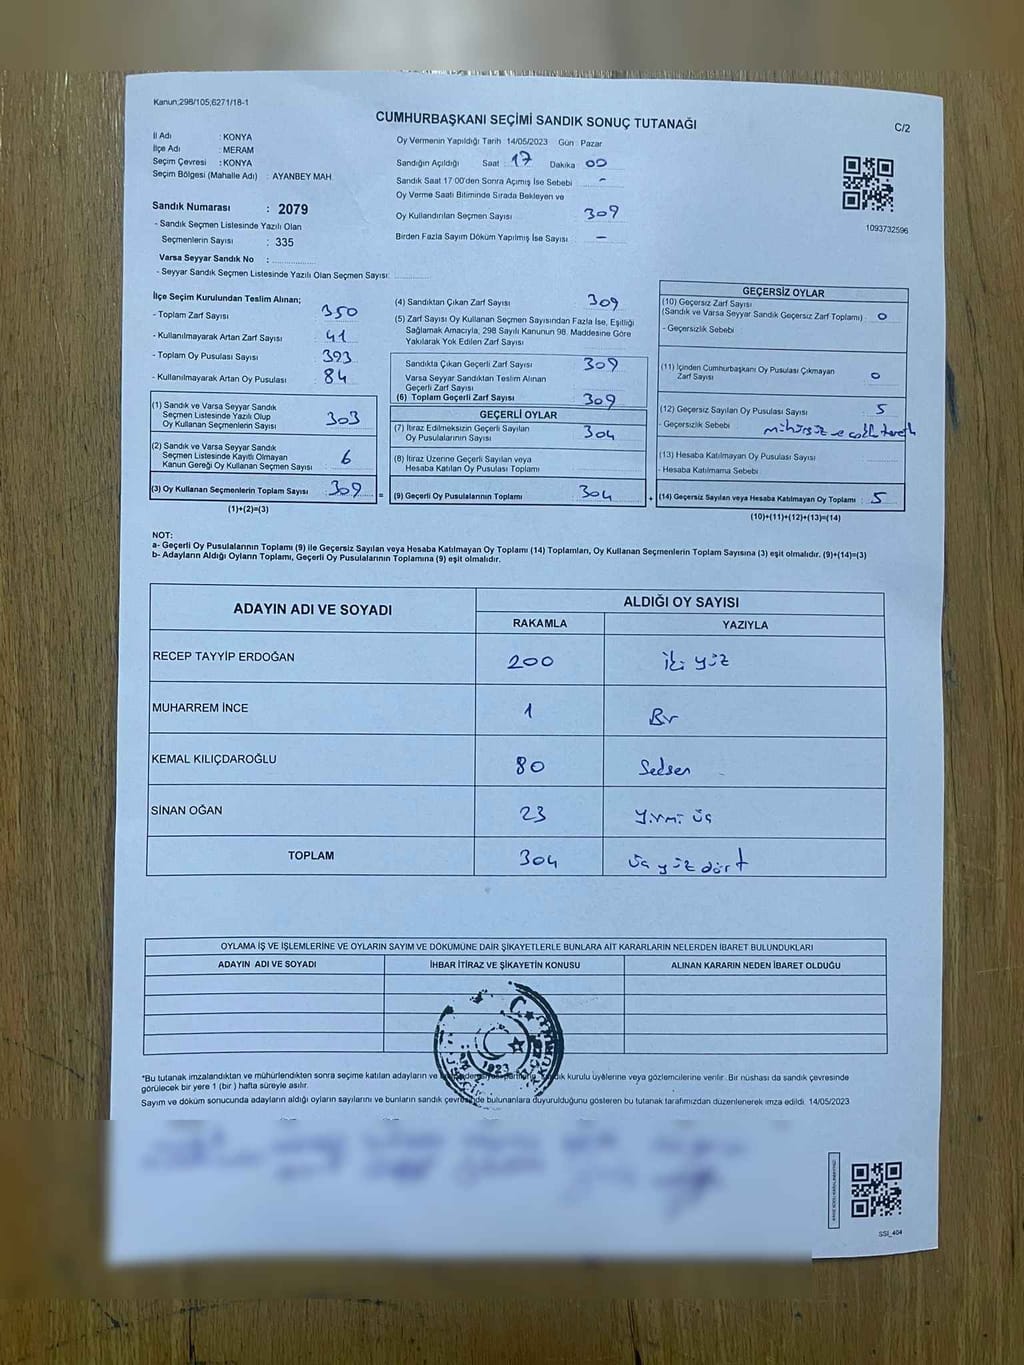 Kanun;298/105;6271/18-1
CUMHURBAŞKANI SEÇİMİ SANDIK SONUÇ TUTANAĞI
C/2
İl Adı : KONYA
İlçe Adı : MERAM
Seçim Çevresi : KONYA
Seçim Bölgesi (Mahalle Adı) : AYANBEY MAH.
Sandık Numarası : 2079
- Sandık Seçmen Listesinde Yazılı Olan
Seçmenlerin Sayısı : 335
Varsa Seyyar Sandık No :
- Seyyar Sandık Seçmen Listesinde Yazılı Olan Seçmen Sayısı:
Oy Vermenin Yapıldığı Tarih 14/05/2023 Gün : Pazar
Sandığın Açıldığı Saat : 17 Dakika 00
Sandık Saat 17:00'den Sonra Açımış İse Sebebi -
Oy Verme Saati Bitiminde Sırada Bekleyen ve
Oy Kullandırılan Seçmen Sayısı 309
Birden Fazla Sayım Döküm Yapılmış İse Sayısı -
1093732596
İlçe Seçim Kurulundan Teslim Alınan;
- Toplam Zarf Sayısı 350
- Kullanılmayarak Artan Zarf Sayısı 41
- Toplam Oy Pusulası Sayısı 393
- Kullanılmayarak Artan Oy Pusulası 84
(1) Sandık ve Varsa Seyyar Sandık
Seçmen Listesinde Yazılı Olup
Oy Kullanan Seçmenlerin Sayısı 303
(2) Sandık ve Varsa Seyyar Sandık
Seçmen Listesinde Kayıtlı Olmayan
Kanun Gereği Oy Kullanan Seçmen Sayısı 6
(3) Oy Kullanan Seçmenlerin Toplam Sayısı 309 =
(1)+(2)=(3)
(4) Sandıktan Çıkan Zarf Sayısı 309
(5) Zarf Sayısı Oy Kullanan Seçmen Sayısından Fazla İse, Eşitliği
Sağlamak Amacıyla, 298 Sayılı Kanunun 98. Maddesine Göre
Yakılarak Yok Edilen Zarf Sayısı
Sandıkta Çıkan Geçerli Zarf Sayısı 309
Varsa Seyyar Sandıktan Teslim Alınan
Geçerli Zarf Sayısı
(6) Toplam Geçerli Zarf Sayısı 309
GEÇERLİ OYLAR
(7) İtiraz Edilmeksizin Geçerli Sayılan
Oy Pusulalarının Sayısı 304
(8) İtiraz Üzerine Geçerli Sayılan veya
Hesaba Katılan Oy Pusulası Toplamı
(9) Geçerli Oy Pusulalarının Toplamı 304 +
GEÇERSİZ OYLAR
(10) Geçersiz Zarf Sayısı
(Sandık ve Varsa Seyyar Sandık Geçersiz Zarf Toplamı) 0
- Geçersizlik Sebebi
(11) İçinden Cumhurbaşkanı Oy Pusulası Çıkmayan
Zarf Sayısı 0
(12) Geçersiz Sayılan Oy Pusulası Sayısı 5
- Geçersizlik Sebebi mühürsüz ve
(13) Hesaba Katılmayan Oy Pusulası Sayısı
- Hesaba Katılmama Sebebi
(14) Geçersiz Sayılan veya Hesaba Katılmayan Oy Toplamı 5
(10)+(11)+(12)+(13)=(14)
NOT:
a- Geçerli Oy Pusulalarının Toplamı (9) ile Geçersiz Sayılan veya Hesaba Katılmayan Oy Toplamı (14) Toplamları, Oy Kullanan Seçmenlerin Toplam Sayısına (3) eşit olmalıdır. (9)+(14)=(3)
b- Adayların Aldığı Oyların Toplamı, Geçerli Oy Pusulalarının Toplamına (9) eşit olmalıdır.
ADAYIN ADI VE SOYADI ALDIĞI OY SAYISI
RAKAMLA YAZIYLA
RECEP TAYYİP ERDOĞAN 200 iki yüz
MUHARREM İNCE 1 Bir
KEMAL KILIÇDAROĞLU 80 Seksen
SİNAN OĞAN 23 Yirmi üç
TOPLAM 304 Üç yüz dört
OYLAMA İŞ VE İŞLEMLERİNE VE OYLARIN SAYIM VE DÖKÜMÜNE DAİR ŞİKAYETLERLE BUNLARA AİT KARARLARIN NELERDEN İBARET BULUNDUKLARI
ADAYIN ADI VE SOYADI İHBAR İTİRAZ VE ŞİKAYETİN KONUSU ALINAN KARARIN NEDEN İBARET OLDUĞU
1923
*Bu tutanak imzalandıktan ve mühürlendikten sonra seçime katılan adayların ve kurulu üyelerine veya gözlemcilerine verilir. Bir nüshası da sandık çevresinde
görülecek bir yere 1 (bir ) hafta süreyle asılır.
Sayım ve döküm sonucunda adayların aldığı oyların sayılarını ve bunların sandık çevresinde bulunanlara duyurulduğunu gösteren bu tutanak tarafımızdan düzenlenerek imza edildi. 14/05/2023
SSI_404